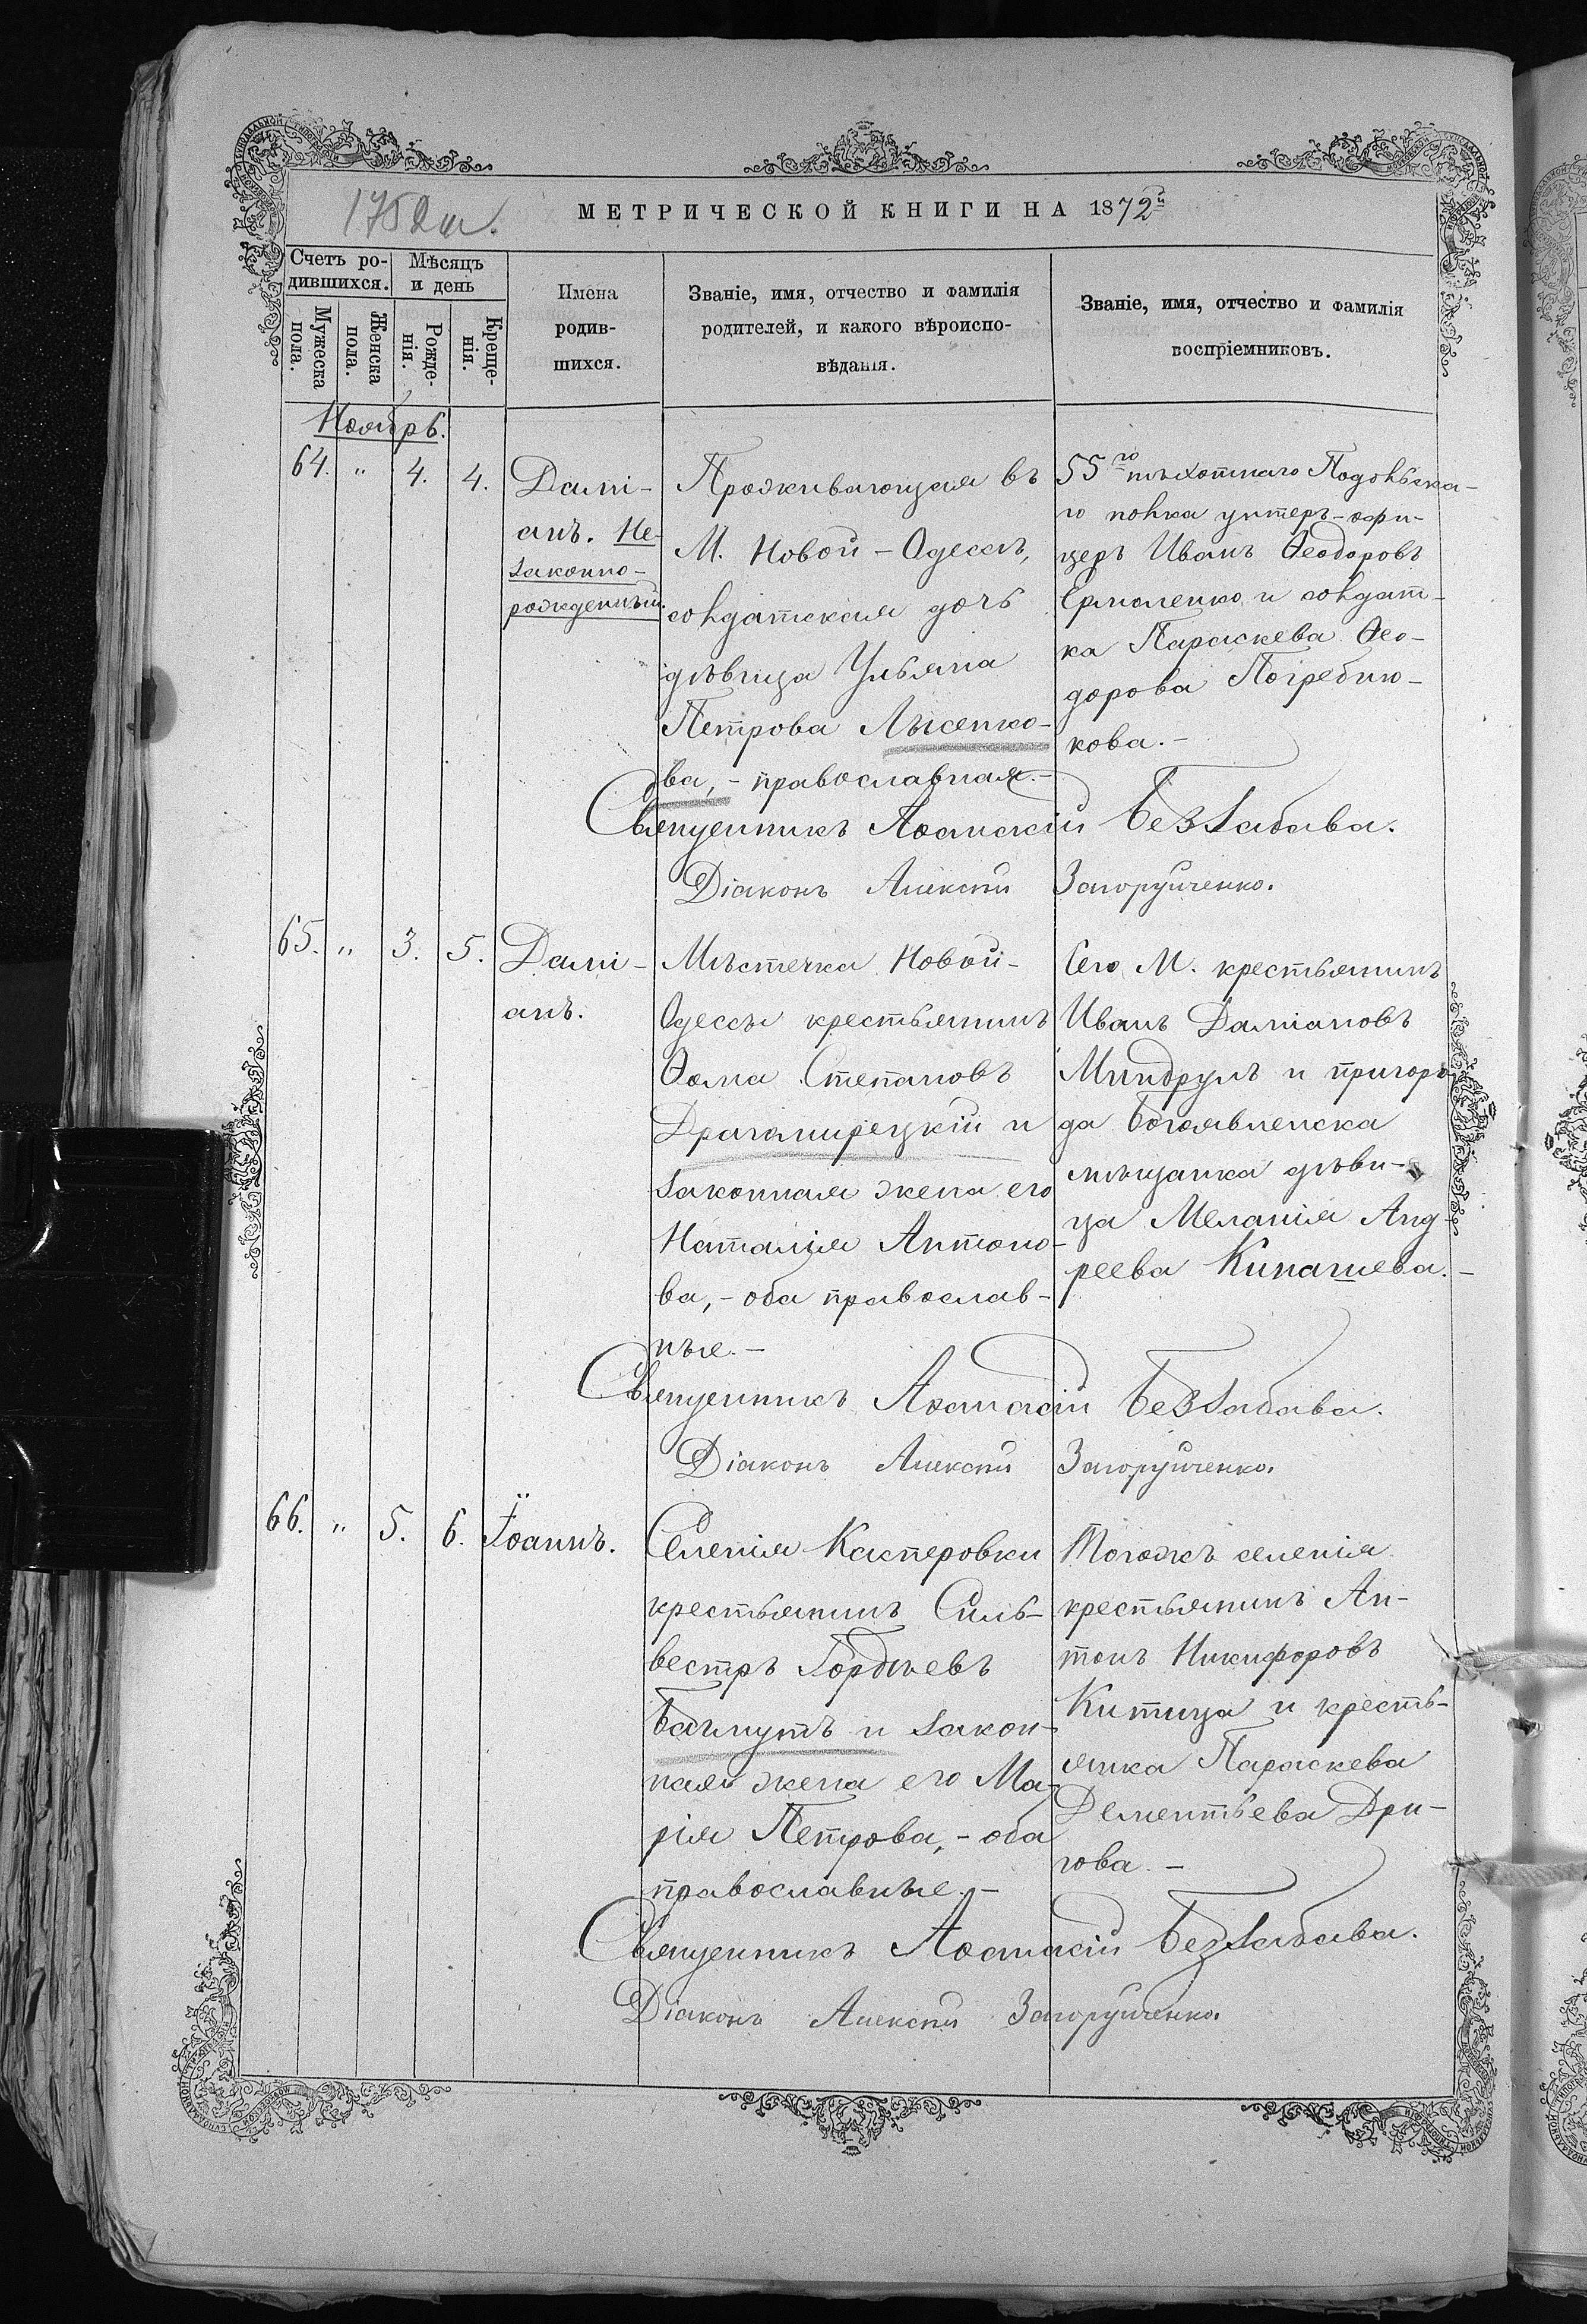 МЕТРИЧЕСКОЙ КНИГИ НА 1872й
Счетъ родившихся.
Мужеска пола.
Женска пола.
Мѣсяцъ и день
Рожденія.
Крещенія.
Имена
родив-
шихся.
Званіе, имя, отчество и фамилія
родителей, и какого вѣроиспо-
вѣданія.
Званіе, имя, отчество и фамилія
воспріемниковъ.
Ноябрь.
64. " 4. 4.
Дамі-
анъ. Не-
законно-
рожденный.
Проживающая въ
М. Новой-Одессѣ,
солдатская дочь
дѣвица Ульяна
Петрова Лысенко-
ва,- православная.-
55го пѣхотнаго Подольска-
го полка унтеръ-офи-
церъ Иванъ Ѳеодоровъ
Ермоленко и солдат-
ка Параскева Ѳео-
дорова Погребню-
кова.-
Священникъ Аѳанасій Беззабава.
Діаконъ Алексѣй Загоруйченко.
65. " 3. 5.
Дамі-
анъ.
Мѣстечка Новой-
Одессы крестьянинъ
Ѳома Степановъ
Драгомирецкій и
законная жена его
Наталія Антоно-
ва,- оба православ-
ные.-
Сего М. крестьянинъ
Иванъ Даміановъ
Миндрулъ и пригоро-
да Богоявленска
мѣщанка дѣви-
ца Меланія Анд-
реева Кипашева.-
Священникъ Аѳанасій Беззабава.
Діаконъ Алексѣй Загоруйченко.
66. " 5. 6.
Іоаннъ.
Селенія Касперовки
крестьянинъ Силь-
вестръ Гордѣевъ
Бахмутъ и закон-
ная жена его Ма-
рія Петрова,- оба
православные.-
Тогожъ селенія
крестьянинъ Ан-
тонъ Никифоровъ
Китица и кресть-
янка Параскева
Дементьева Дри-
гова.-
Священникъ Аѳанасій Беззабава.
Діаконъ Алексѣй Загоруйченко.